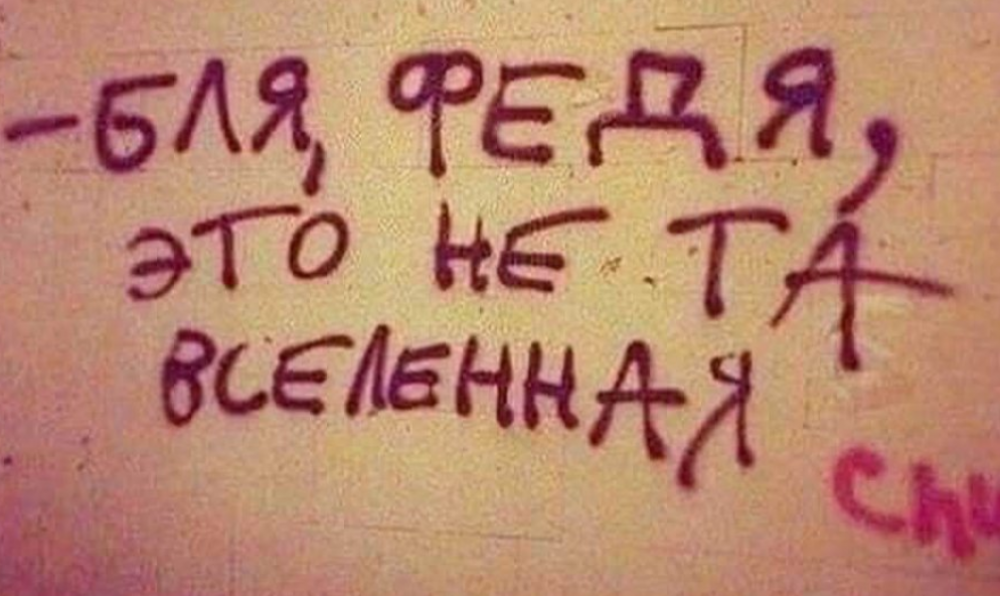 -БЛЯ, ФЕДЯ,
ЭТО НЕ ТА
ВСЕЛЕННАЯ